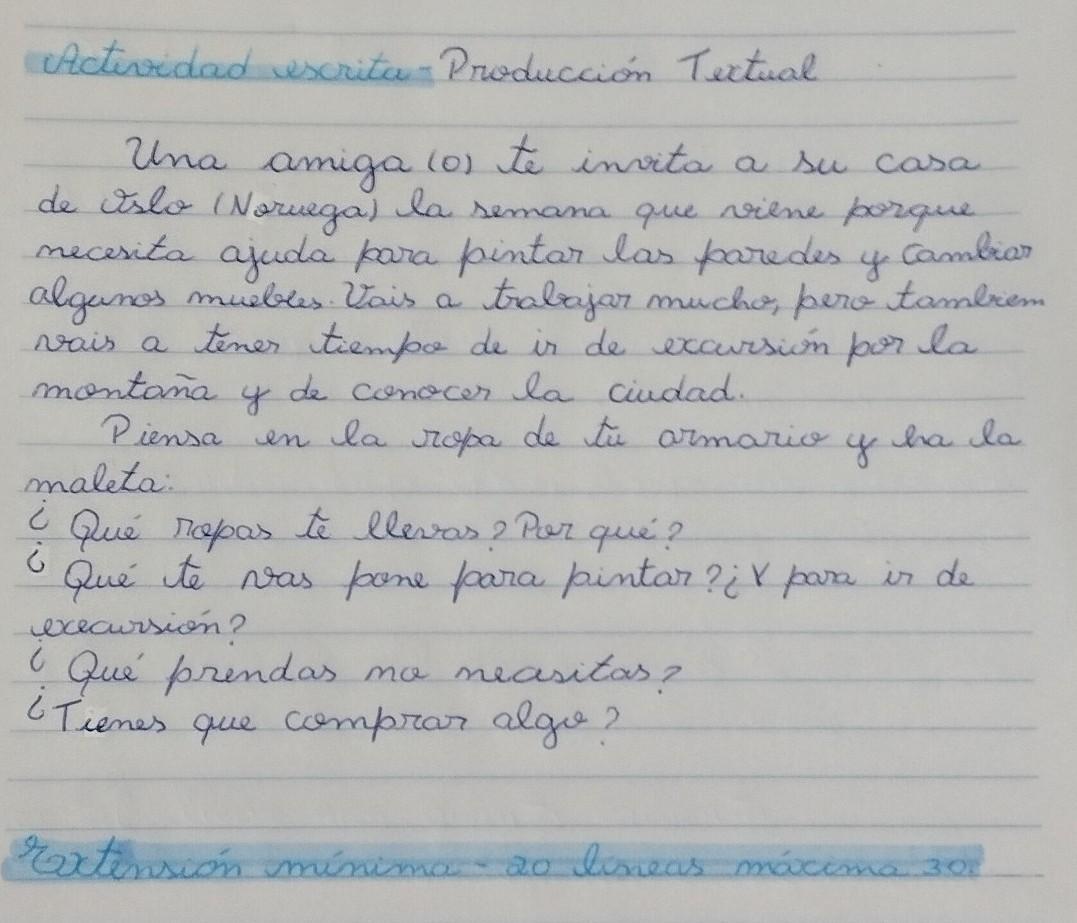 Actividad escrita - Producción Textual
Una amiga (o) te invita a su casa
de Oslo (Noruega) la semana que viene porque
necesita ajuda para pintar las paredes y cambiar
algunos muebles. Vais a trabajar mucho, pero tambiem
vais a tener tiempo de ir de excursión por la
montaña y de conocer la ciudad.
Piensa en la ropa de tu armario y ha la
maleta:
¿Qué ropas te llevas? Por qué?
¿Qué te vas pone para pintar? ¿Y para ir de
execursión?
¿Qué prendas no necasitas?
¿Tienes que comprar algo?
Extensión mínima - 20 líneas máxima 30.